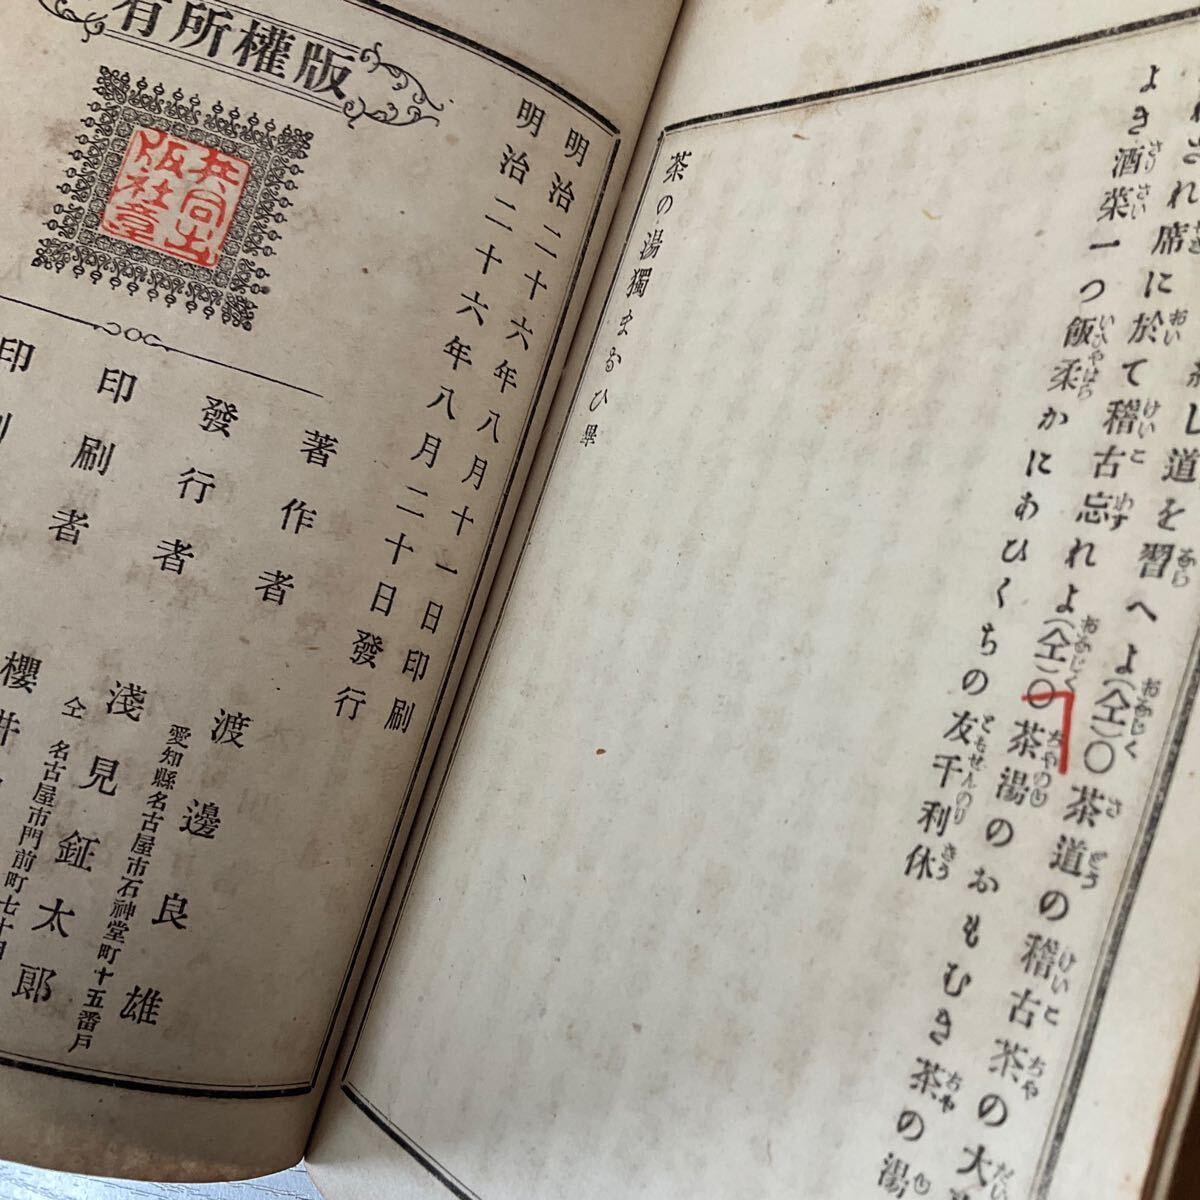 よき酒菜一つ飯柔かにあひくちの友千利休
席に於て稽古忘れよ(仝)〇茶湯のおもむき茶の湯
し道を習へよ(仝)〇茶道の稽古茶の大
茶の湯獨まなひ畢
明治二十六年八月十一日印刷
明治二十六年八月二十日發行
版權所有
共同出版社章
著作者 渡邊良雄
愛知縣名古屋市石神堂町十五番戶
發行者 淺見鉦太郎
仝 名古屋市門前町七十
印刷者 櫻井
印刷